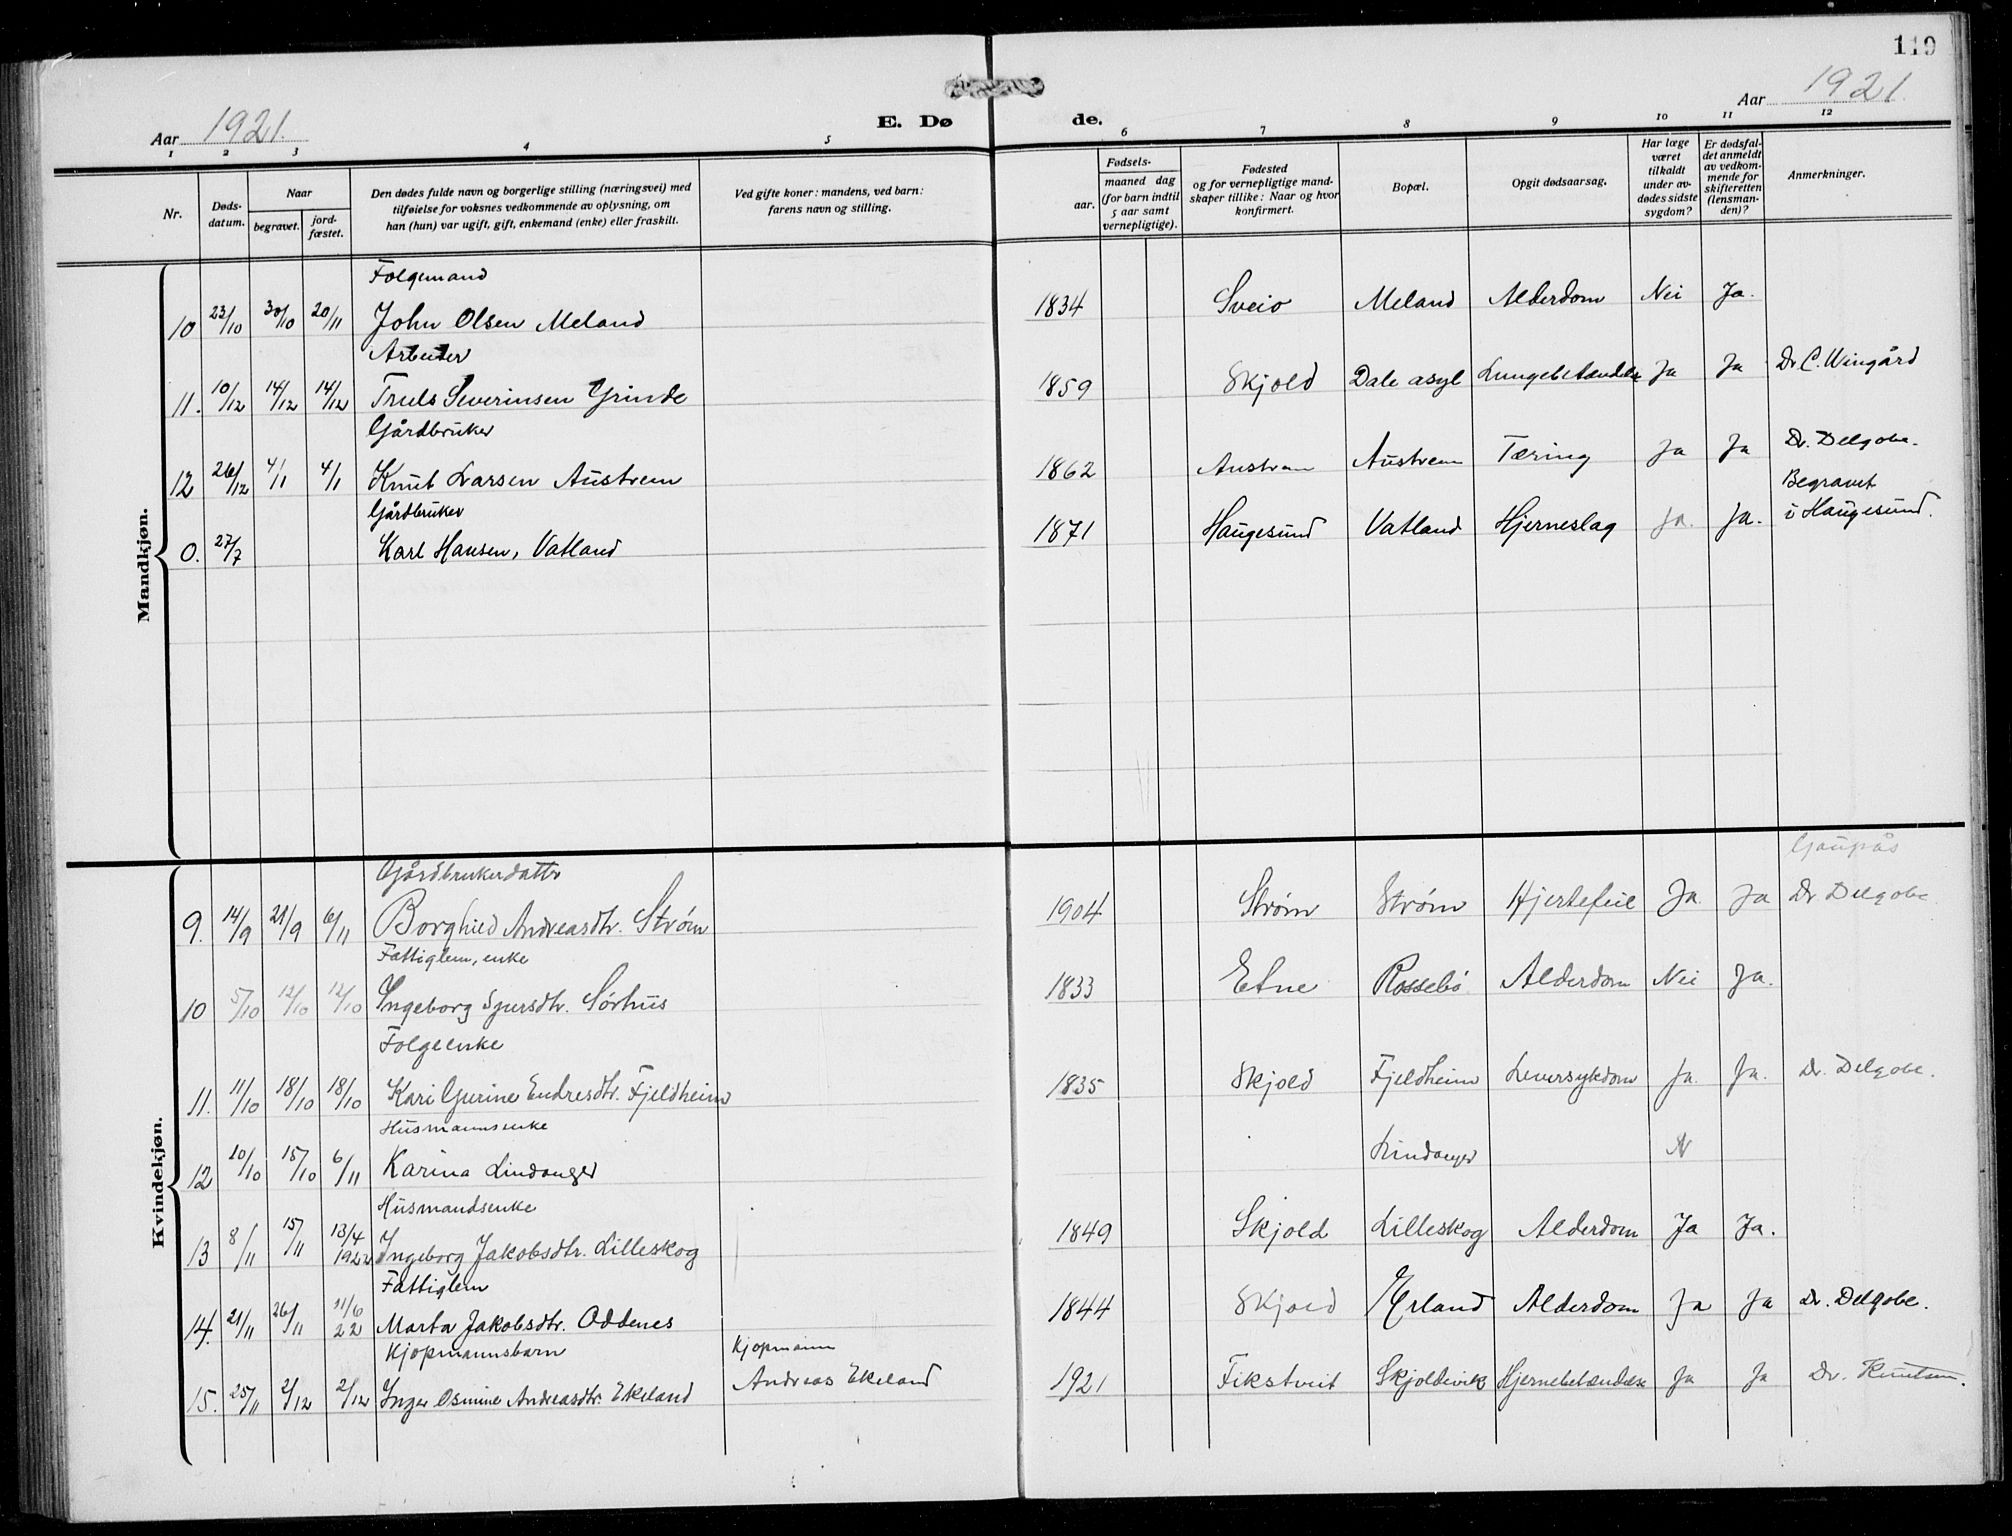 119
Aar 1921.
E. Dø
de.
Aar 1921.
1 2 3 4 5 6 7 8 9 10 11 12
Nr.
Døds-
datum.
Naar
begravet.
jord-
fæstet.
Den dødes fulde navn og borgerlige stilling (næringsvei) med
tilføielse for voksnes vedkommende av oplysning, om
han (hun) var ugift, gift, enkemand (enke) eller fraskilt.
Ved gifte koner: mandens, ved barn:
farens navn og stilling.
Fødsels-
aar.
maaned dag
(for barn indtil
5 aar samt
vernepligtige).
Fødested
og for vernepligtige mand-
skaper tillike: Naar og hvor
konfirmert.
Bopæl.
Opgit dødsaarsag.
Har læge
været
tilkaldt
under av-
dødes sidste
sygdom?
Er dødsfal-
det anmeldt
av vedkom-
mende for
skifteretten
(lensman-
den)?
Anmerkninger.
Mandkjøn.
Folgemand
10 23/10 30/10 20/11 John Olsen Meland 1834 Sveio Meland Alderdom Nei Ja.
Arbeider
11. 10/12 14/12 14/12 Truls Severinsen Grinde 1859 Skjold Dale asyl Lungebetændelse Ja Ja Dr. C. Wingård
Gårdbruker
12 26/12 4/1 4/1 Knut Larsen Austrem 1862 Austrem Austrem Tæring Ja Ja Dr. Delgobe.
Gårdbruker
Begravet
0. 27/7 Karl Hansen, Vatland 1871 Haugesund Vatland Hjerneslag Ja. Ja. i Haugesund.
Kvindekjøn.
Gårdbrukerdatter
Gaupås
9. 14/9 21/9 6/11 Borghild Andreasdtr. Strøm 1904 Strøm Strøm Hjertefeil Ja. Ja Dr Delgobe.
Fattiglem, enke
10 5/10 12/10 12/10 Ingeborg Sjursdtr. Sørhus 1833 Etne Rossebö Alderdom Nei Ja.
Folgeenke
11. 11/10 18/10 18/10 Kari Gurine Endresdtr. Fjeldheim 1835 Skjold Fjeldheim Leversykdom Ja. Ja. Dr. Delgobe.
Husmannsenke
12 10/10 15/10 6/11 Karina Lindanger Lindanger N
Husmandsenke
13 8/11 15/11 13/4 1922 Ingeborg Jakobsdtr. Lilleskog 1849 Skjold Lilleskog Alderdom Ja Ja.
Fattiglem
14. 21/11 26/11 11/6 22 Marta Jakobsdtr. Oddenes 1844 Skjold Erland Alderdom Ja Ja Dr. Delgobe.
Kjopmannsbarn Kjopmann
15. 25/11 2/12 2/12 Inger Osmine Andreasdtr. Ekeland Andreas Ekeland 1921 Fikstveit Skjoldevik Hjernebetændelse Ja Ja Dr. Knutsen.